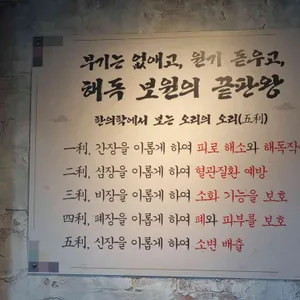 부기는 없애고, 원기 돋우고,
해독 보원의 끝판왕
한의학에서 보는 오리의 오리(五利)
一利, 간장을 이롭게 하여 피로 해소와 해독작
二利, 심장을 이롭게 하여 혈관질환 예방
三利, 비장을 이롭게 하여 소화 기능을 보호
四利, 폐장을 이롭게 하여 폐와 피부를 보호
五利, 신장을 이롭게 하여 소변 배출